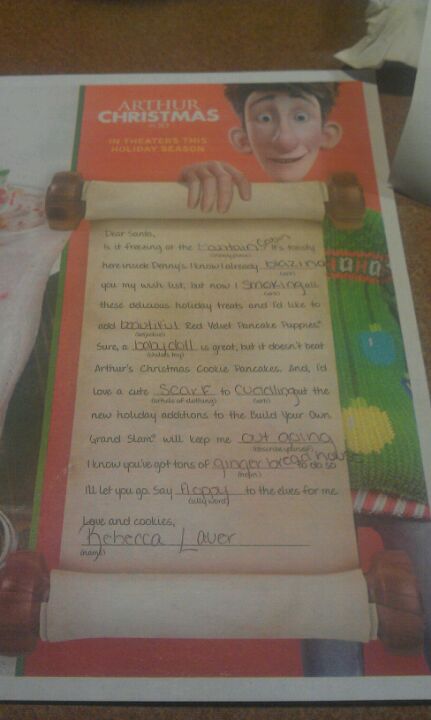 ARTHUR
CHRISTMAS
IN 3D
IN THEATERS THIS
HOLIDAY SEASON
Dear Santa,
Is it freezing at the It's toasty
(snowy place)
here inside Denny's. I know I already blazing
(verb)
you my wish list, but now I smoking all
(verb)
these delicious holiday treats and I'd like to
add beautiful Red Velvet Pancake Puppies®
(adjective)
Sure, a baby doll is great, but it doesn't beat
(child's toy)
Arthur's Christmas Cookie Pancakes. And, I'd
love a cute Scarf to Cuddling but the
(article of clothing) (verb)
new holiday additions to the Build Your Own
Grand Slam® will keep me out going
(describe yourself)
I know you've got tons of ginger bread house to do so
(noun)
I'll let you go. Say Floppy to the elves for me.
(silly word)
Love and cookies,
Rebecca Laver
(name)